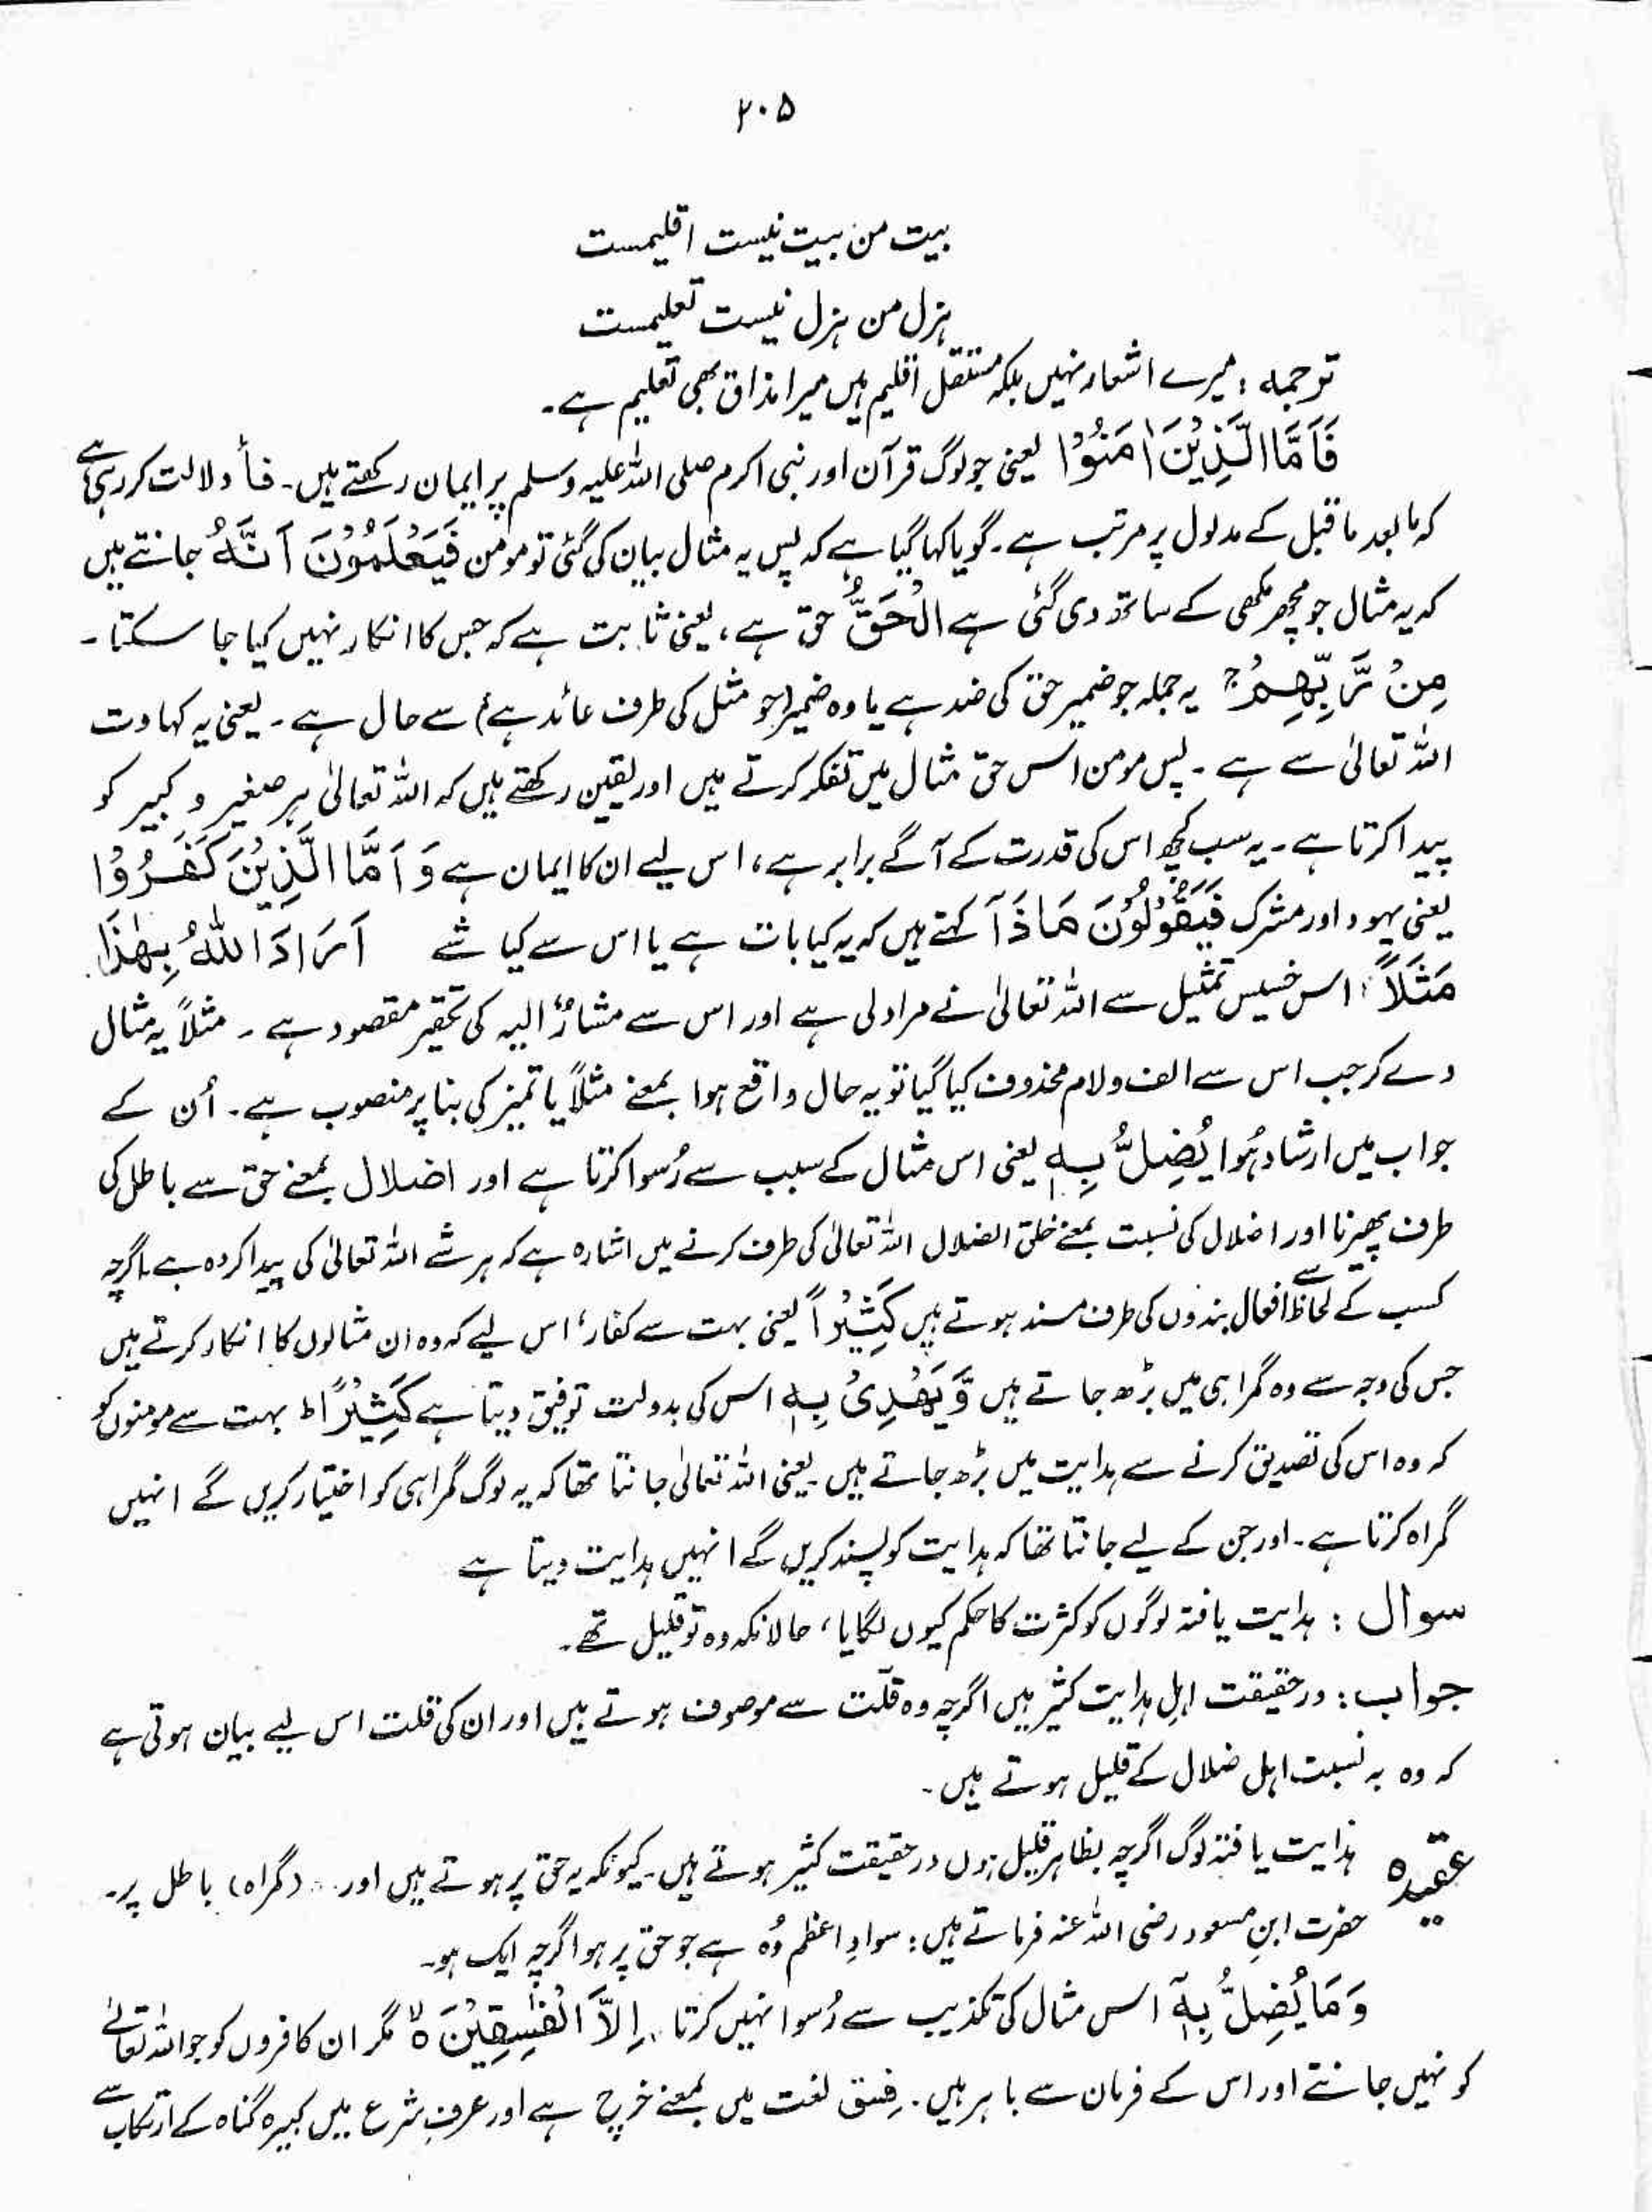 ۲۰۵
بیت من بیت نیست اقلیمست
ہزل من ہزل نیست تعلیمست
ترجمہ : میرے اشعار نہیں بلکہ مستقل اقلیم ہیں میرا مذاق بھی تعلیم ہے۔
فَاَمَّا الَّذِیْنَ اٰمَنُوْا یعنی جو لوگ قرآن اور نبی اکرم صلی اللہ علیہ وسلم پر ایمان رکھتے ہیں۔ فأ دلالت کر رہی ہے
کہ ما بعد ما قبل کے مدلول پر مرتب ہے۔ گویا کہا گیا ہے کہ پس یہ مثال بیان کی گئی تو مومن فَیَعْلَمُوْنَ اَنَّهُ جانتے ہیں
کہ یہ مثال جو مچھر مکھی کے ساتھ دی گئی ہے الْحَقُّ حق ہے، یعنی ثابت ہے کہ جس کا انکار نہیں کیا جا سکتا۔
مِنْ رَّبِّهِمْ ج یہ جملہ جو ضمیر حق کی ضد ہے یا وہ ضمیر (جو مثل کی طرف عائد ہے) سے حال ہے۔ یعنی یہ کہاوت
اللہ تعالیٰ سے ہے۔ پس مومن اس حق مثال میں تفکر کرتے ہیں اور یقین رکھتے ہیں کہ اللہ تعالیٰ ہر صغیر و کبیر کو
پیدا کرتا ہے۔ یہ سب کچھ اس کی قدرت کے آگے برابر ہے، اس لیے ان کا ایمان ہے وَ اَمَّا الَّذِیْنَ کَفَرُوْا
یعنی یہود اور مشرک فَیَقُوْلُوْنَ مَاذَآ کہتے ہیں کہ یہ کیا بات ہے یا اس سے کیا شے اَرَادَ اللّٰهُ بِهٰذَا
مَثَلًا ۘ اس خسیس تمثیل سے اللہ تعالیٰ نے مراد لی ہے اور اس سے مشارٌ الیہ کی تحقیر مقصود ہے۔ مثلاً یہ مثال
دے کر جب اس سے الف ولام محذوف کیا گیا تو یہ حال واقع ہوا بمعنے مثلاً یا تمیز کی بنا پر منصوب ہے۔ اُن کے
جواب میں ارشاد ہُوا یُضِلُّ بِهٖ یعنی اس مثال کے سبب سے رُسوا کرتا ہے اور اضلال بمعنے حق سے باطل کی
طرف پھیرنا اور اضلال کی نسبت بمعنے خلق الضلال اللہ تعالیٰ کی طرف کرنے میں اشارہ ہے کہ ہر شے اللہ تعالیٰ کی پیدا کردہ ہے اگرچہ
کسب کے لحاظ سے افعال بندوں کی طرف مسند ہوتے ہیں کَثِیْرًا یعنی بہت سے کفار، اس لیے کہ وہ ان مثالوں کا انکار کرتے ہیں
جس کی وجہ سے وہ گمراہی میں بڑھ جاتے ہیں وَّ یَهْدِیْ بِهٖ اس کی بدولت توفیق دیتا ہے کَثِیْرًا ط بہت سے مومنوں کو
کہ وہ اس کی تصدیق کرنے سے ہدایت میں بڑھ جاتے ہیں۔ یعنی اللہ تعالیٰ جانتا تھا کہ یہ لوگ گمراہی کو اختیار کریں گے انہیں
گمراہ کرتا ہے۔ اور جن کے لیے جانتا تھا کہ ہدایت کو پسند کریں گے انہیں ہدایت دیتا ہے
سوال : ہدایت یافتہ لوگوں کو کثرت کا حکم کیوں لگایا، حالانکہ وہ تو قلیل تھے۔
جواب : درحقیقت اہلِ ہدایت کثیر ہیں اگرچہ وہ قلّت سے موصوف ہوتے ہیں اور ان کی قلت اس لیے بیان ہوتی ہے
کہ وہ بہ نسبت اہل ضلال کے قلیل ہوتے ہیں۔
عقیدہ ہدایت یافتہ لوگ اگرچہ بظاہر قلیل ہوں درحقیقت کثیر ہوتے ہیں۔ کیونکہ یہ حق پر ہوتے ہیں اور... (گمراہ) باطل پر۔
حضرت ابنِ مسعود رضی اللہ عنہ فرماتے ہیں : سوادِ اعظم وُہ ہے جو حق پر ہو اگرچہ ایک ہو۔
وَ مَا یُضِلُّ بِهٖٓ اس مثال کی تکذیب سے رُسوا نہیں کرتا اِلَّا الْفٰسِقِیْنَ ۙ مگر ان کافروں کو جو اللہ تعالےٰ
کو نہیں جانتے اور اس کے فرمان سے باہر ہیں۔ فِسق لغت میں بمعنے خرج ہے اور عرفِ شرع میں کبیرہ گناہ کے ارتکاب سے